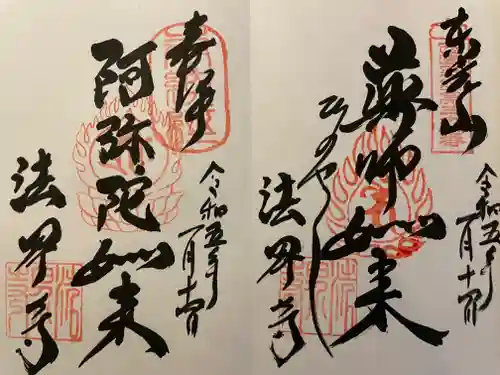 東光山
薬師如来
ひのやくし
法界寺
令和五年
一月十一日
奉拝
阿弥陀如来
法界寺
令和五年
一月十一日